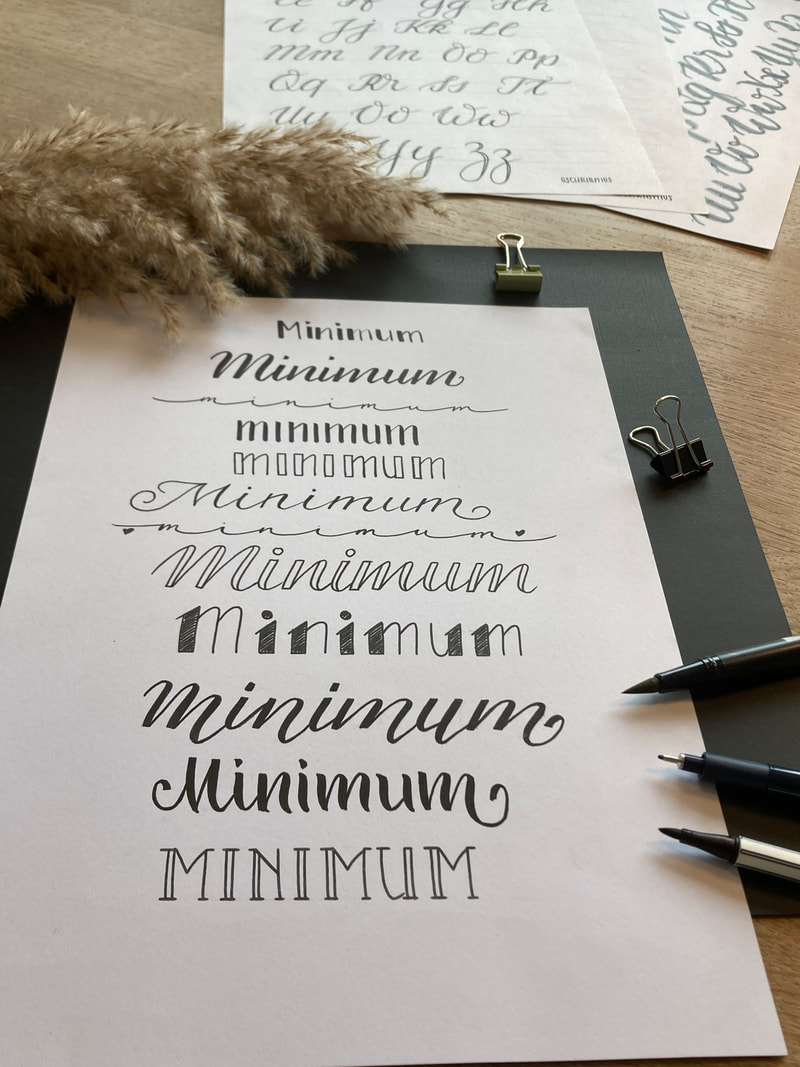 Uu Vv Ww
Yy Zz
Ii Jj Kk Ll
Mm Nn Oo Pp
Qq Rr Ss Tt
Minimum
Minimum
minimum
minimum
minimum
Minimum
minimum
Minimum
Minimum
Minimum
Minimum
MINIMUM